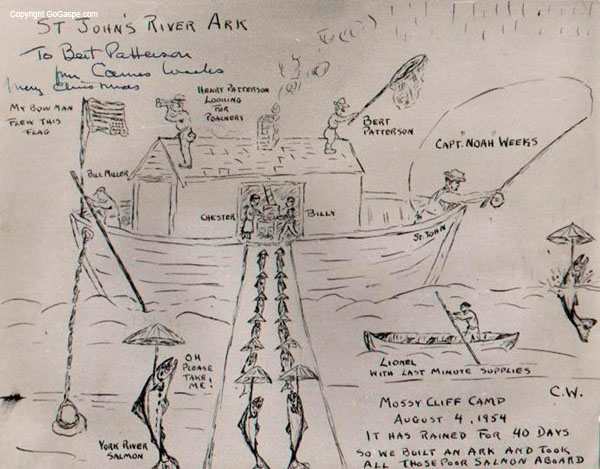 Copyright GoGaspe.com
ST JOHN'S RIVER ARK
To Bert Patterson
Carnes Weeks
Merry Christmas
MY BOWMAN
FLEW THIS
FLAG
HENRY PATTERSON
LOOKING
FOR
POACHERS
BERT
PATTERSON
CAPT. "NOAH" WEEKS
BILL MILLER
CHESTER
BILLY
ST. JOHN
OH
PLEASE
TAKE
ME!
YORK RIVER
SALMON
LIONEL
WITH LAST MINUTE SUPPLIES
C.W.
MOSSY CLIFF CAMP
AUGUST 4, 1954
IT HAS RAINED FOR 40 DAYS
SO WE BUILT AN ARK AND TOOK
ALL THOSE POOR SALMON ABOARD